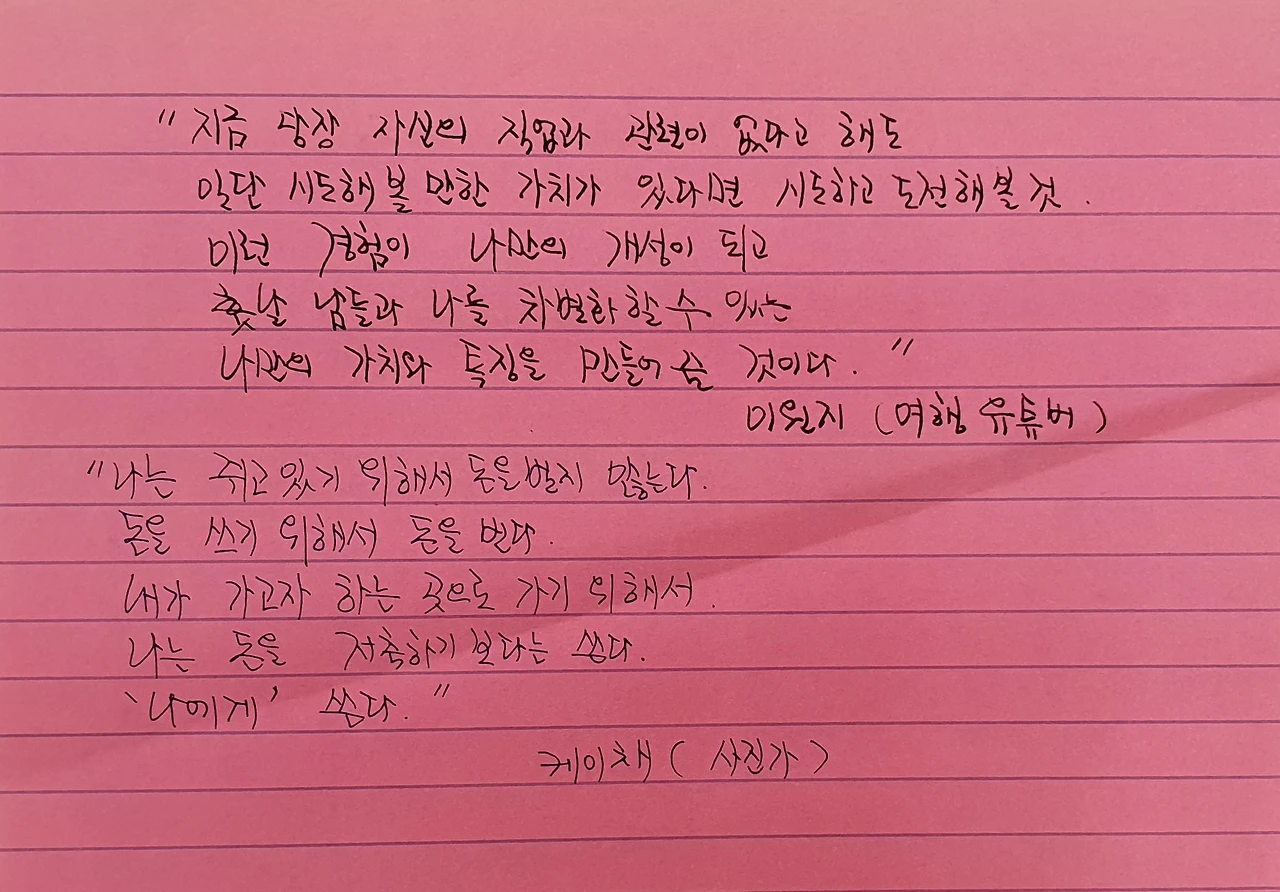 "지금 당장 자신의 직업과 관련이 없다고 해도
일단 시도해 볼 만한 가치가 있다면 시도하고 도전해 볼 것.
이런 경험이 나만의 개성이 되고
훗날 남들과 나를 차별화할 수 있는
나만의 가치와 특징을 만들어 줄 것이다."
이원지 (여행 유튜버)
"나는 쥐고 있기 위해서 돈을 벌지 않는다.
돈을 쓰기 위해서 돈을 번다.
내가 가고자 하는 곳으로 가기 위해서.
나는 돈을 저축하기 보다는 쓴다.
'나에게' 쓴다."
케이채 (사진가)